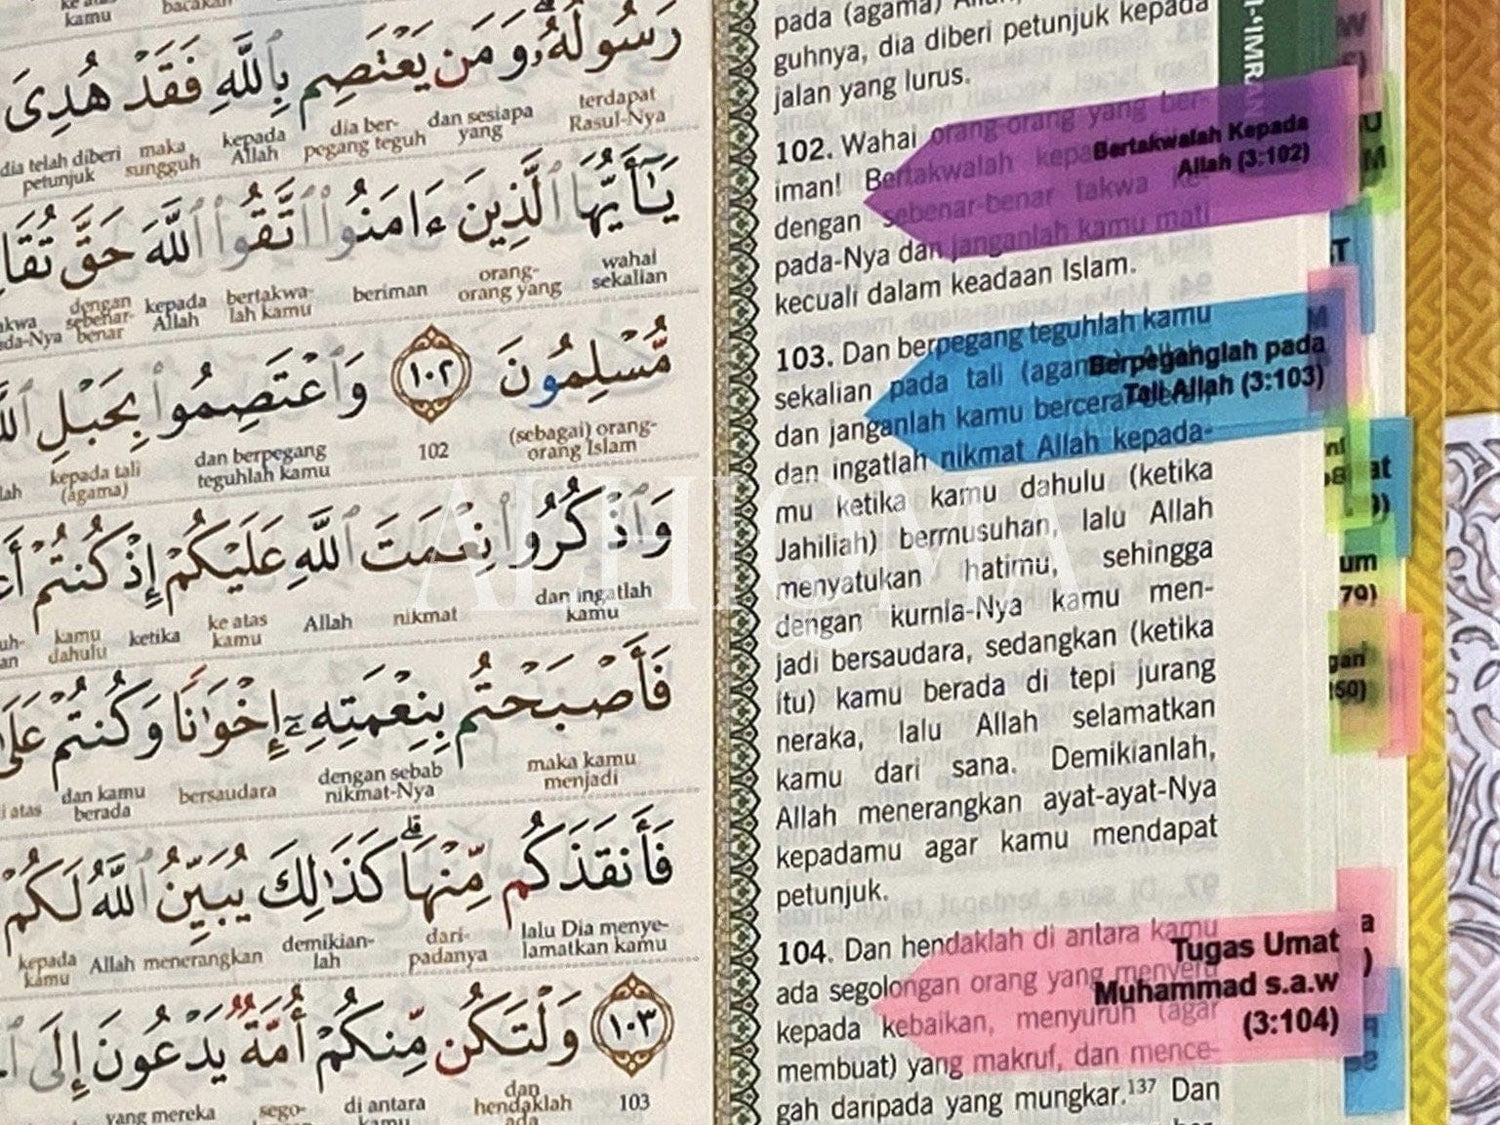 kamu
bacakan
رَسُولُهُۥ وَمَن يَعْتَصِم بِٱللَّهِ فَقَدْ هُدِىَ
terdapat Rasul-Nya
dan sesiapa yang
dia ber-pegang teguh
kepada Allah
maka sungguh
dia telah diberi petunjuk
يَـٰٓأَيُّهَا ٱلَّذِينَ ءَامَنُوا۟ ٱتَّقُوا۟ ٱللَّهَ حَقَّ
wahai sekalian
orang-orang yang
beriman
bertakwa-lah kamu
kepada Allah
dengan sebenar-benar
مُّسْلِمُونَ ١٠٢ وَٱعْتَصِمُوا۟ بِحَبْلِ
(sebagai) orang-orang Islam
102
dan berpegang teguhlah kamu
kepada tali (agama)
وَٱذْكُرُوا۟ نِعْمَتَ ٱللَّهِ عَلَيْكُمْ إِذْ كُنتُمْ
dan ingatlah kamu
nikmat
Allah
ke atas kamu
ketika
kamu dahulu
فَأَصْبَحْتُم بِنِعْمَتِهِۦٓ إِخْوَٰنًا وَكُنتُمْ
maka kamu menjadi
dengan sebab nikmat-Nya
bersaudara
dan kamu berada
فَأَنقَذَكُم مِّنْهَا ۗ كَذَٰلِكَ يُبَيِّنُ ٱللَّهُ لَكُمْ
lalu Dia menye-lamatkan kamu
dari-padanya
demikian-lah
menerangkan
Allah
kepada kamu
١٠٣ وَلْتَكُن مِّنكُمْ أُمَّةٌ يَدْعُونَ إِلَى
103
dan hendaklah ada
di antara kamu
sego-
yang mereka
guhnya, dia diberi petunjuk kepada
jalan yang lurus.
102. Wahai orang-orang yang ber-
iman! Bertakwalah
dengan sebenar-benar takwa ke-
pada-Nya dan janganlah kamu mati
kecuali dalam keadaan Islam.
103. Dan berpegang teguhlah kamu
sekalian pada tali
dan janganlah kamu bercerai
dan ingatlah nikmat Allah kepada-
mu ketika kamu dahulu (ketika
Jahiliah) bermusuhan, lalu Allah
menyatukan hatimu, sehingga
dengan kurnia-Nya kamu men-
jadi bersaudara, sedangkan (ketika
itu) kamu berada di tepi jurang
neraka, lalu Allah selamatkan
kamu dari sana. Demikianlah,
Allah menerangkan ayat-ayat-Nya
kepadamu agar kamu mendapat
petunjuk.
104. Dan hendaklah di antara kamu
ada segolongan orang yang menyeru
kepada kebaikan, menyuruh (agar
membuat) yang makruf, dan mence-
gah daripada yang mungkar.¹³⁷ Dan
Bertakwalah Kepada
Allah (3:102)
Berpeganglah pada
Tali Allah (3:103)
Tugas Umat
Muhammad s.a.w
(3:104)